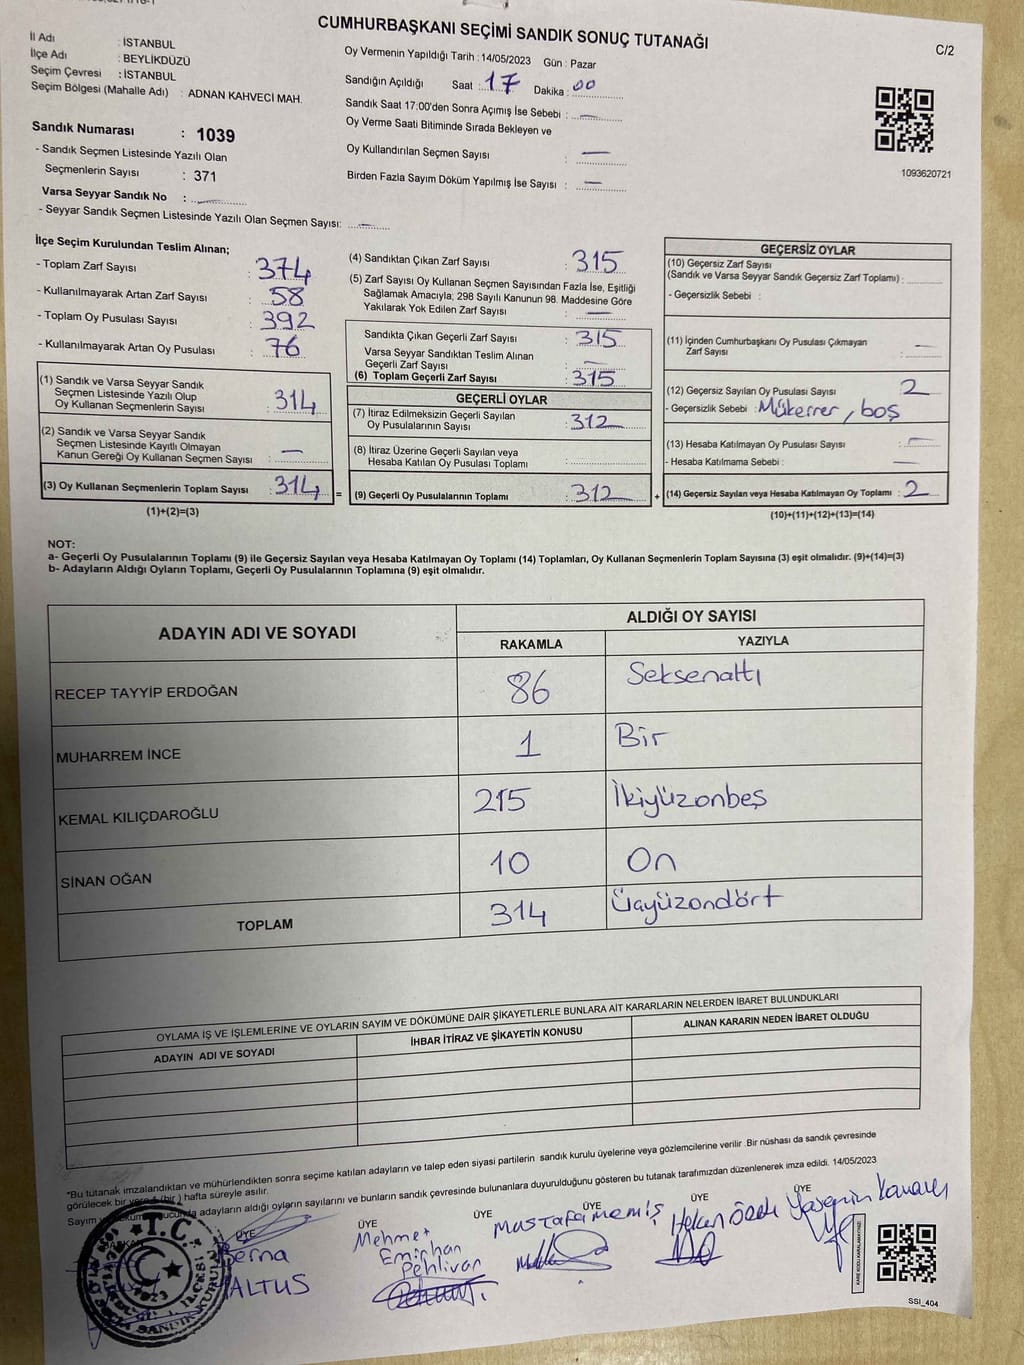 CUMHURBAŞKANI SEÇİMİ SANDIK SONUÇ TUTANAĞI
C/2
İl Adı : İSTANBUL
İlçe Adı : BEYLİKDÜZÜ
Seçim Çevresi : İSTANBUL
Seçim Bölgesi (Mahalle Adı) : ADNAN KAHVECİ MAH.
Sandık Numarası : 1039
- Sandık Seçmen Listesinde Yazılı Olan
Seçmenlerin Sayısı : 371
Varsa Seyyar Sandık No :
- Seyyar Sandık Seçmen Listesinde Yazılı Olan Seçmen Sayısı: —
Oy Vermenin Yapıldığı Tarih : 14/05/2023 Gün : Pazar
Sandığın Açıldığı Saat : 17 Dakika : 00
Sandık Saat 17:00'den Sonra Açımış İse Sebebi : —
Oy Verme Saati Bitiminde Sırada Bekleyen ve
Oy Kullandırılan Seçmen Sayısı : —
Birden Fazla Sayım Döküm Yapılmış İse Sayısı : —
1093620721
İlçe Seçim Kurulundan Teslim Alınan;
- Toplam Zarf Sayısı : 374
- Kullanılmayarak Artan Zarf Sayısı : 58
- Toplam Oy Pusulası Sayısı : 392
- Kullanılmayarak Artan Oy Pusulası : 76
(1) Sandık ve Varsa Seyyar Sandık
Seçmen Listesinde Yazılı Olup
Oy Kullanan Seçmenlerin Sayısı : 314
(2) Sandık ve Varsa Seyyar Sandık
Seçmen Listesinde Kayıtlı Olmayan
Kanun Gereği Oy Kullanan Seçmen Sayısı : —
(3) Oy Kullanan Seçmenlerin Toplam Sayısı : 314
(1)+(2)=(3)
(4) Sandıktan Çıkan Zarf Sayısı : 315
(5) Zarf Sayısı Oy Kullanan Seçmen Sayısından Fazla İse, Eşitliği
Sağlamak Amacıyla; 298 Sayılı Kanunun 98. Maddesine Göre
Yakılarak Yok Edilen Zarf Sayısı : —
Sandıkta Çıkan Geçerli Zarf Sayısı : 315
Varsa Seyyar Sandıktan Teslim Alınan
Geçerli Zarf Sayısı : —
(6) Toplam Geçerli Zarf Sayısı : 315
GEÇERLİ OYLAR
(7) İtiraz Edilmeksizin Geçerli Sayılan
Oy Pusulalarının Sayısı : 312
(8) İtiraz Üzerine Geçerli Sayılan veya
Hesaba Katılan Oy Pusulası Toplamı :
= (9) Geçerli Oy Pusulalarının Toplamı : 312 +
GEÇERSİZ OYLAR
(10) Geçersiz Zarf Sayısı
(Sandık ve Varsa Seyyar Sandık Geçersiz Zarf Toplamı) :
- Geçersizlik Sebebi :
(11) İçinden Cumhurbaşkanı Oy Pusulası Çıkmayan
Zarf Sayısı : —
(12) Geçersiz Sayılan Oy Pusulası Sayısı : 2
- Geçersizlik Sebebi : Mükerrer, boş
(13) Hesaba Katılmayan Oy Pusulası Sayısı : —
- Hesaba Katılmama Sebebi : —
(14) Geçersiz Sayılan veya Hesaba Katılmayan Oy Toplamı : 2
(10)+(11)+(12)+(13)=(14)
NOT:
a- Geçerli Oy Pusulalarının Toplamı (9) ile Geçersiz Sayılan veya Hesaba Katılmayan Oy Toplamı (14) Toplamları, Oy Kullanan Seçmenlerin Toplam Sayısına (3) eşit olmalıdır. (9)+(14)=(3)
b- Adayların Aldığı Oyların Toplamı, Geçerli Oy Pusulalarının Toplamına (9) eşit olmalıdır.
ADAYIN ADI VE SOYADI
ALDIĞI OY SAYISI
RAKAMLA YAZIYLA
RECEP TAYYİP ERDOĞAN 86 Seksenaltı
MUHARREM İNCE 1 Bir
KEMAL KILIÇDAROĞLU 215 İkiyüzonbeş
SİNAN OĞAN 10 On
TOPLAM 314 Üçyüzondört
OYLAMA İŞ VE İŞLEMLERİNE VE OYLARIN SAYIM VE DÖKÜMÜNE DAİR ŞİKAYETLERLE BUNLARA AİT KARARLARIN NELERDEN İBARET BULUNDUKLARI
ADAYIN ADI VE SOYADI İHBAR İTİRAZ VE ŞİKAYETİN KONUSU ALINAN KARARIN NEDEN İBARET OLDUĞU
*Bu tutanak imzalandıktan ve mühürlendikten sonra seçime katılan adayların ve talep eden siyasi partilerin sandık kurulu üyelerine veya gözlemcilerine verilir .Bir nüshası da sandık çevresinde
görülecek bir yere 1 (bir ) hafta süreyle asılır.
adayların aldığı oyların sayılarını ve bunların sandık çevresinde bulunanlara duyurulduğunu gösteren bu tutanak tarafımızdan düzenlenerek imza edildi. 14/05/2023
ÜYE ÜYE ÜYE ÜYE ÜYE
Berna
ALTUS
Mehmet
Emirhan
Pehlivan
Mustafa Memiş
T.C.
SANDIK KURULU
KARE KODU KARALAMAYINIZ!
SSI_404